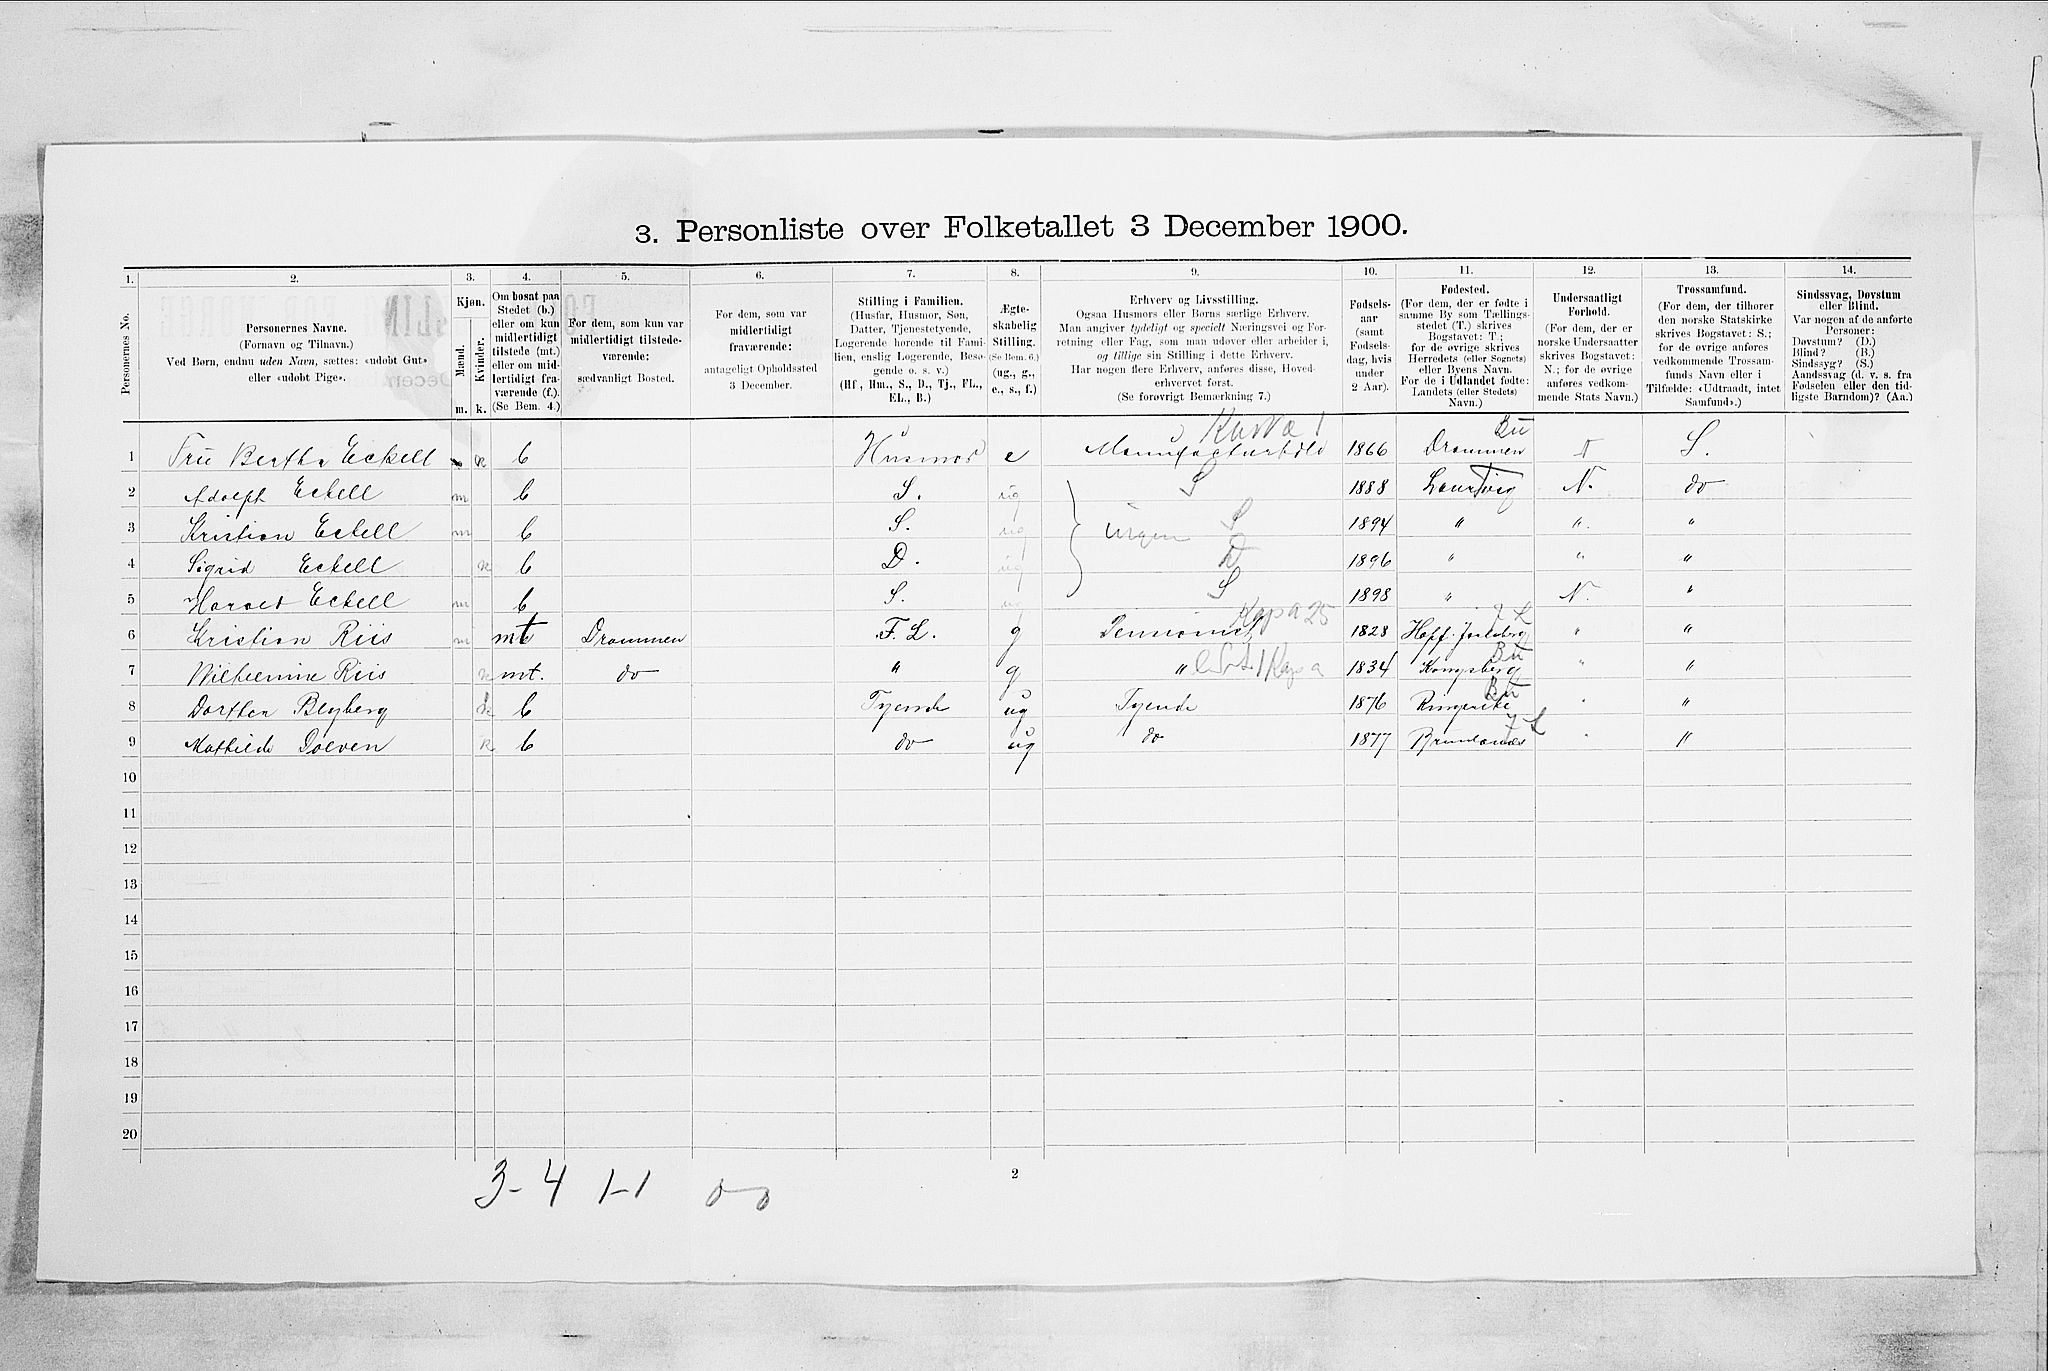 3. Personliste over Folketallet 3 December 1900.
1. 2. 3. 4. 5. 6. 7. 8. 9. 10. 11. 12. 13. 14.
Personernes No.
Personernes Navne.
(Fornavn og Tilnavn.)
Ved Børn, endnu uden Navn, sættes: «udøbt Gut»
eller «udøbt Pige».
Kjøn.
Mænd.
Kvinder.
m. k.
Om bosat paa
Stedet (b.)
eller om kun
midlertidigt
tilstede (mt.)
eller om mid-
lertidigt fra-
værende (f.).
(Se Bem. 4.)
For dem, som kun var
midlertidigt tilstede-
værende:
sædvanligt Bosted.
For dem, som var
midlertidigt
fraværende:
antageligt Opholdssted
3 December.
Stilling i Familien.
(Husfar, Husmor, Søn,
Datter, Tjenestetyende,
Logerende hørende til Fami-
lien, enslig Logerende, Besø-
gende o. s. v.)
(Hf, Hm., S., D., Tj., FL.,
EL., B.)
Ægte-
skabelig
Stilling.
(Se Bem. 6.)
(ug., g.,
e., s., f.)
Erhverv og Livsstilling.
Ogsaa Husmors eller Børns særlige Erhverv.
Man angiver tydeligt og specielt Næringsvei og For-
retning eller Fag, som man udøver eller arbeider i,
og tillige sin Stilling i dette Erhverv.
Har nogen flere Erhverv, anføres disse, Hoved-
erhvervet først.
(Se forøvrigt Bemærkning 7.)
Fødsels-
aar
(samt
Fødsels-
dag, hvis
under
2 Aar).
Fødested.
(For dem, der er fødte i
samme By som Tællings-
stedet (T.) skrives
Bogstavet: T.;
for de øvrige skrives
Herredets (eller Sognets)
eller Byens Navn.
For de i Udlandet fødte:
Landets (eller Stedets)
Navn.)
Undersaatligt
Forhold.
(For dem, der er
norske Undersaatter
skrives Bogstavet:
N.; for de øvrige
anføres vedkom-
mende Stats Navn.)
Trossamfund.
(For dem, der tilhører
den norske Statskirke
skrives Bogstavet: S.;
for de øvrige anføres
vedkommende Trossam-
funds Navn eller i
Tilfælde: «Udtraadt, intet
Samfund».)
Sindssvag, Døvstum
eller Blind.
Var nogen af de anførte
Personer:
Døvstum? (D.)
Blind? (B.)
Sindssyg? (S.)
Aandssvag (d. v. s. fra
Fødselen eller den tid-
ligste Barndom)? (Aa.)
1 Fru Bertha Eckell k b Husmor e 1866 Drammen Bu N S.
2 Adolph Eckell m b S. ug S 1888 Laurvig T N. do
3 Kristian Eckell m b S. ug ingen S 1894 " " "
4 Sigrid Eckell k b D. ug D 1896 " " "
5 Harald Eckell m b S. ug S 1898 " N. "
6 Kristian Riis m mt Drammen F. L. g Pensionist Kapa 25 1828 Hoff Jarlsberg J L " "
7 Wilhelmine Riis k mt. do " g " Kapa 1834 Kongsberg Bu " "
8 Dorthea Begberg k b Tyende ug Tyende 1876 Ringerike Bu " "
9 Mathilde Doeven k b do ug do 1877 Brunlanæs J L " "
10
11
12
13
14
15
16
17
18
19
20
3-4 1-1 0-0
2